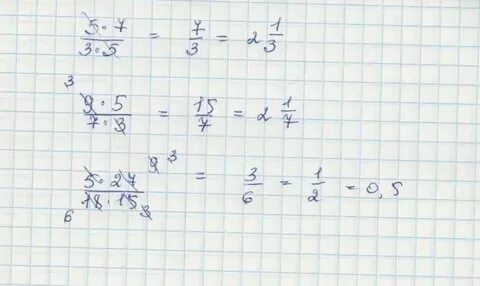 5·7/3·5 = 7/3 = 2 1/3
3
9·5/7·3 = 15/7 = 2 1/7
9 3
5·27/18·15 = 3/6 = 1/2 = 0,5
6 3